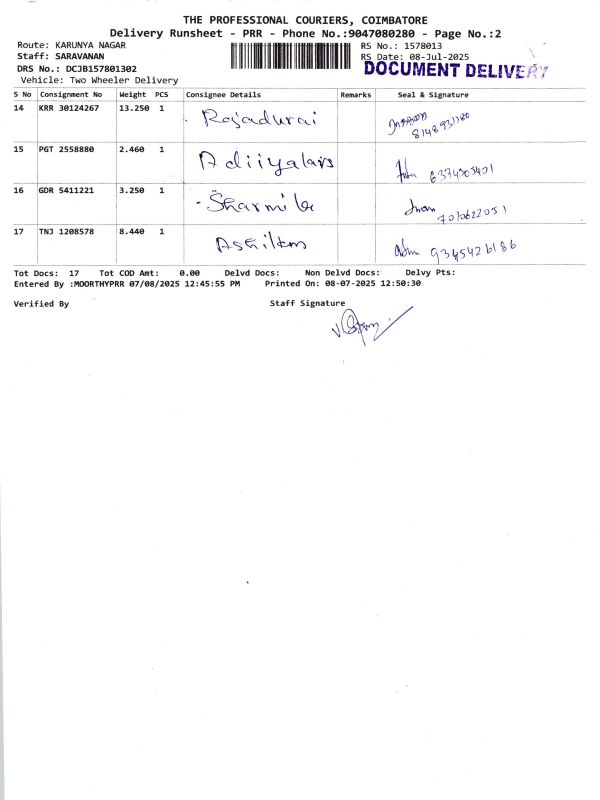 THE PROFESSIONAL COURIERS, COIMBATORE
Delivery Runsheet - PRR - Phone No.:9047080280 - Page No.:2
Route: KARUNYA NAGAR
RS No.: 1578013
Staff: SARAVANAN
RS Date: 08-Jul-2025
DRS No.: DCJB157801302
DOCUMENT DELIVERY
Vehicle: Two Wheeler Delivery
S No Consignment No Weight PCS Consignee Details Remarks Seal & Signature
14 KRR 30124267 13.250 1 Rajadurai
15 PGT 2558880 2.460 1
16 GDR 5411221 3.250 1 Sharmila
17 TNJ 1208578 8.440 1 9345426186
Tot Docs: 17 Tot COD Amt: 0.00 Delvd Docs: Non Delvd Docs: Delvy Pts:
Entered By :MOORTHYPRR 07/08/2025 12:45:55 PM Printed On: 08-07-2025 12:50:30
Verified By Staff Signature